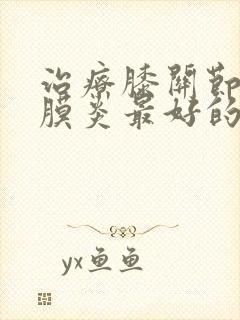 治療膝關節
膜炎最好的
yx鱼鱼